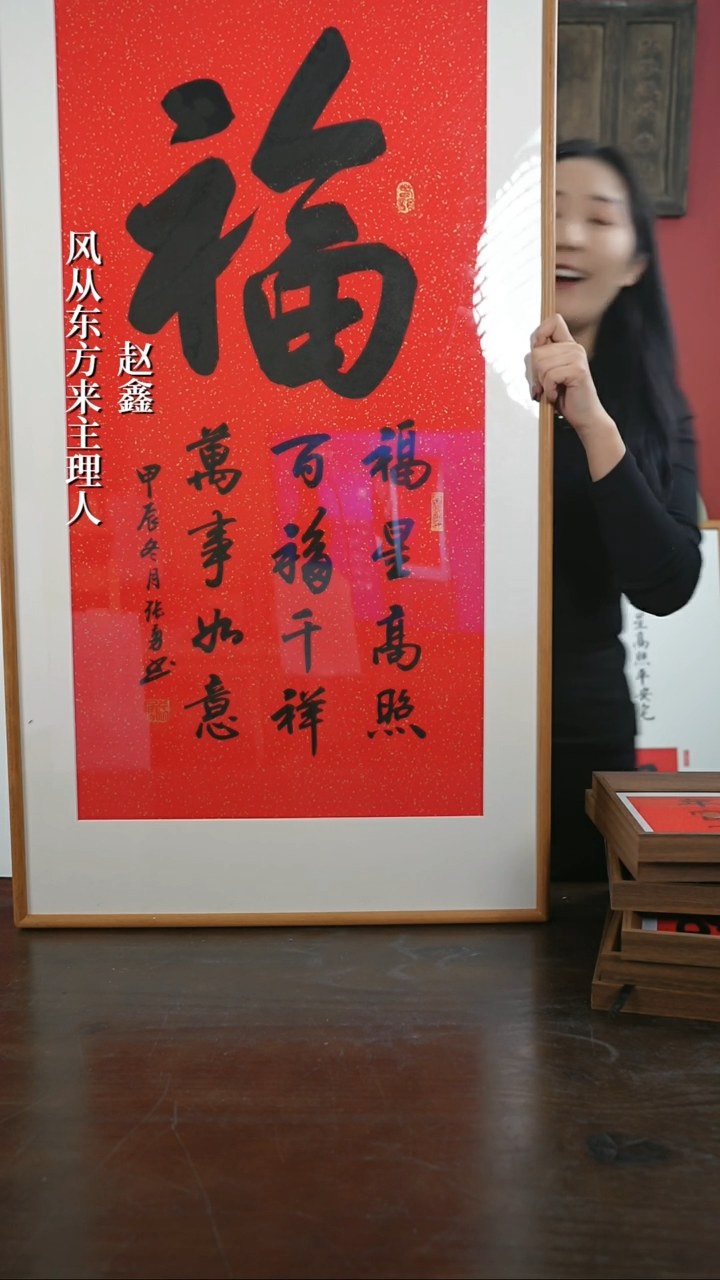 福
福星高照
百福千祥
萬事如意
甲辰冬月张勇书
赵鑫
风从东方来主理人
星高照平安